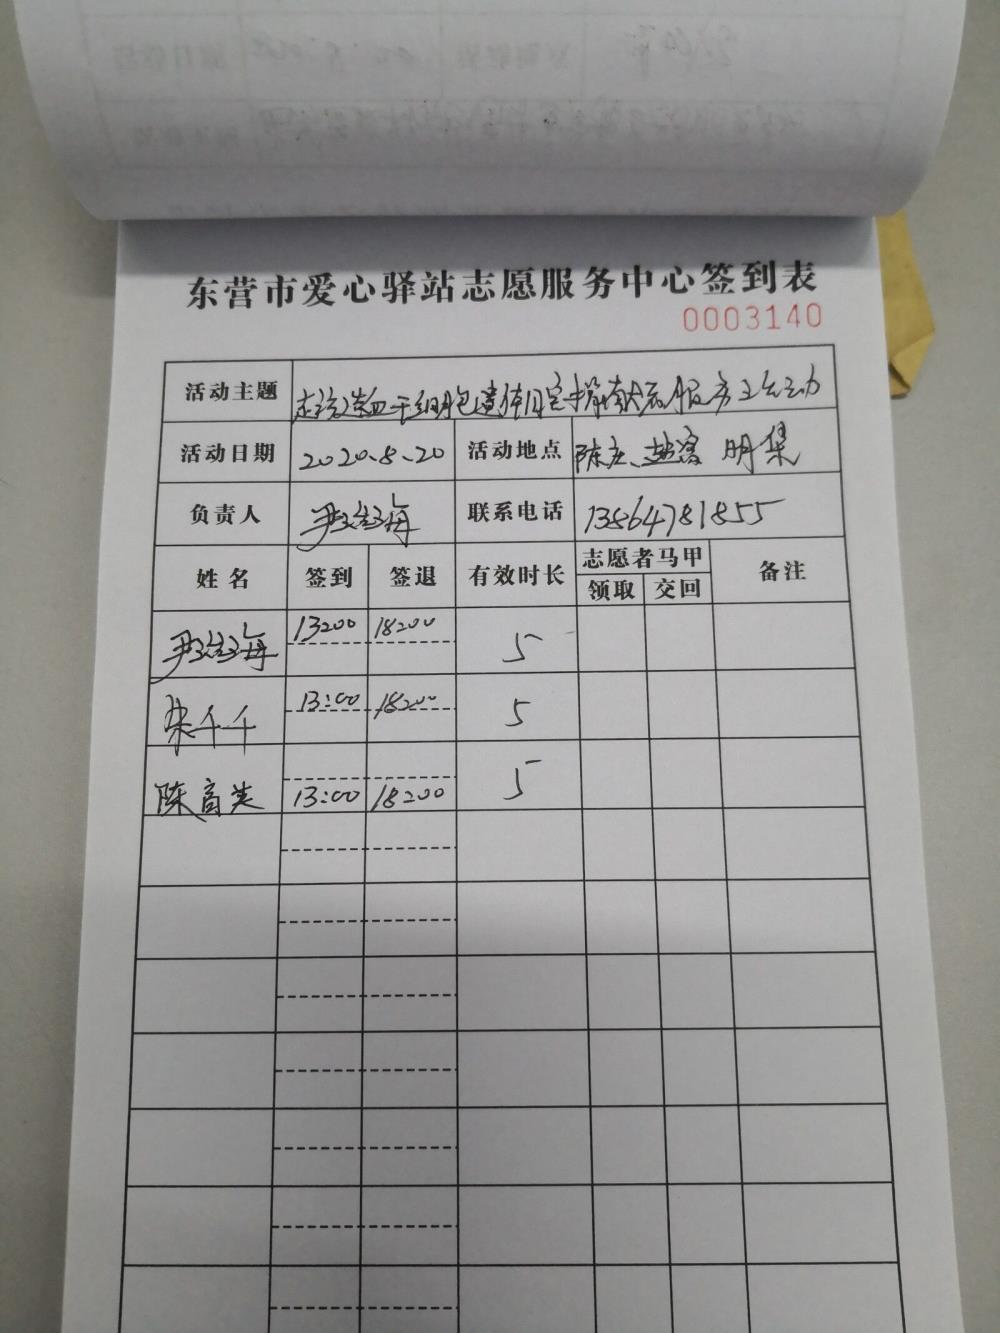 东营市爱心驿站志愿服务中心签到表
0003140
活动主题 造血干细胞遗体捐献志愿服务活动
活动日期 2020.8.20 活动地点 陈庄、盐窝 明集
负责人 海 联系电话 13864781855
姓名 签到 签退 有效时长 志愿者马甲 备注
领取 交回
海 13:00 18:00 5
千千 13:00 18:00 5
陈高 13:00 18:00 5